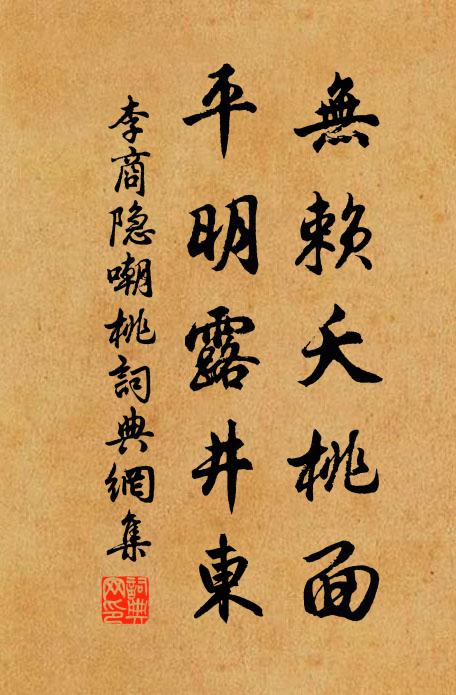 無賴夭桃面
平明露井東
李商隐嘲桃詞典網集
詞典
网印